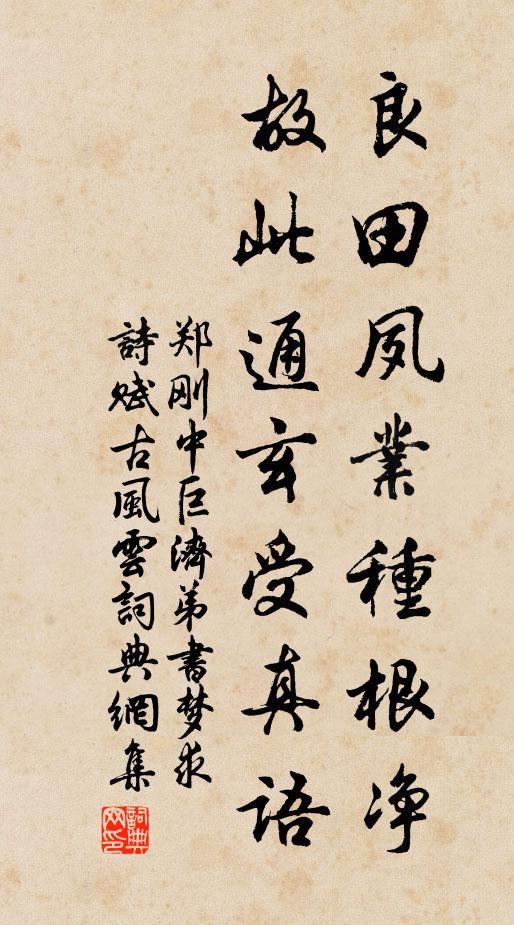 良田夙業種根净
故此通玄受真语
郑刚中巨濟弟書梦求
詩赋古風雲詞典網集
詞典
网印